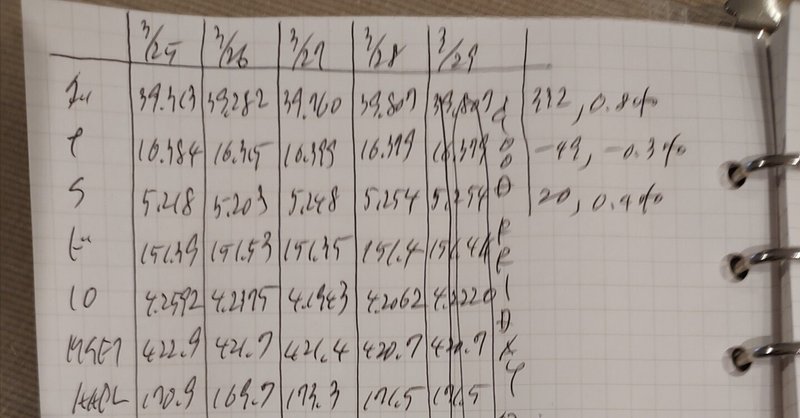 3/25 3/26 3/27 3/28 3/29
39.313 39,282 39.760 39.807 39,807 312, 0.8%
16.384 16.315 16.399 16.379 16.379 -49, -0.3%
S 5.218 5.203 5.248 5.254 5.254 20, 0.4%
151.39 151.53 151.35 151.4 151.41
10 4.2592 4.2375 4.1943 4.2062 4.2220
MSFT 422.9 421.7 421.4 420.7 420.7
AAPL 170.9 169.7 173.3 171.5 171.5
GOOD FRIDAY